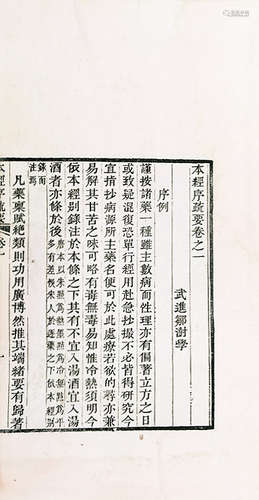 本經序疏要卷之一
武進鄒澍學
序例
謹按諸藥一種雖主數病而性理亦有偏著立方之日
或致疑混復恐單行經用赴急抄撮不必皆得研究今
宜指抄病源所主藥名便可於此處療若欲的尋亦兼
易解其甘苦之味可略有毒無毒易知惟冷熱須明今
依本經別錄注於本條之下其有不宜入湯酒宜入湯
酒者亦條於後
凡藥稟賦絕類則功用廣博然推其端緒要有歸著
本經序疏要 卷一